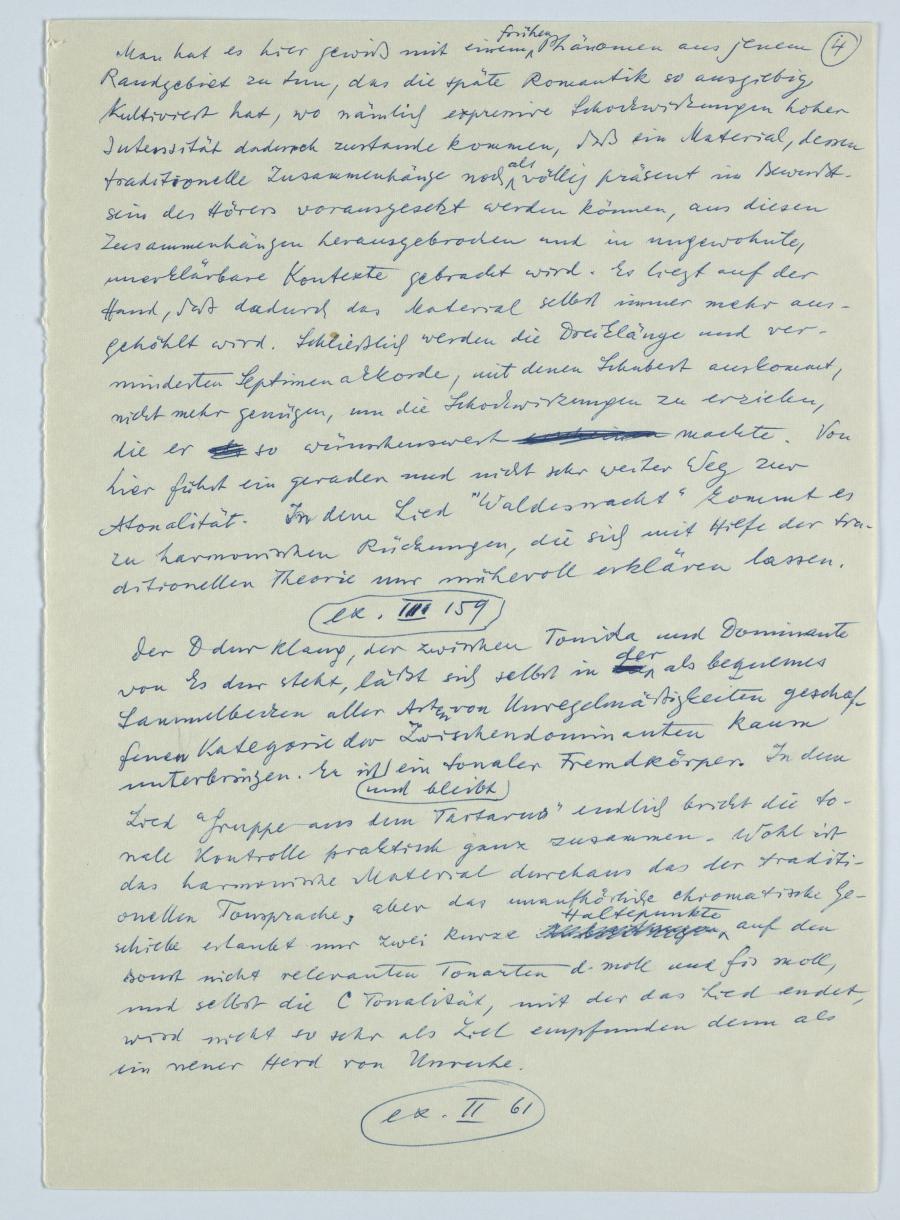 Man hat es hier gewiß mit einem frühen Phänomen aus jenem ④
Randgebiet zu tun, das die späte Romantik so ausgiebig
kultiviert hat, wo nämlich expressive Schockwirkungen hoher
Intensität dadurch zustande kommen, daß ein Material, dessen
traditionelle Zusammenhänge noch als völlig präsent im Bewußt-
sein des Hörers vorausgesetzt werden können, aus diesen
Zusammenhängen herausgebrochen und in ungewohnte,
unerklärbare Kontexte gebracht wird. Es liegt auf der
Hand, daß dadurch das Material selbst immer mehr aus-
gehöhlt wird. Schließlich werden die Dreiklänge und ver-
minderten Septimenakkorde, mit denen Schubert auskommt,
nicht mehr genügen, um die Schockwirkungen zu erzielen,
die er so wünschenswert machte. Von
hier führt ein gerader und nicht sehr weiter Weg zur
Atonalität. In dem Lied "Waldesnacht" kommt es
zu harmonischen Rückungen, die sich mit Hilfe der tra-
ditionellen Theorie nur mühevoll erklären lassen.
ex. III 159
Der D dur Klang, der zwischen Tonika und Dominante
von Es dur steht, läßt sich selbst in der als bequemes
Sammelbecken aller Arten von Unregelmäßigkeiten geschaf-
fenen Kategorie der Zwischendominanten kaum
unterbringen. Er ist ein tonaler Fremdkörper. In dem
und bleibt
Lied "Gruppe aus dem Tartarus" endlich bricht die to-
nale Kontrolle praktisch ganz zusammen. Wohl ist
das harmonische Material durchaus das der traditi-
onellen Tonsprache, aber das unaufhörliche chromatische Ge-
schiebe erlaubt nur zwei kurze Haltepunkte auf den
sonst nicht relevanten Tonarten d-moll und fis moll,
und selbst die C Tonalität, mit der das Lied endet,
wird nicht so sehr als Ziel empfunden denn als
ein neuer Herd von Unruhe.
ex. II 61